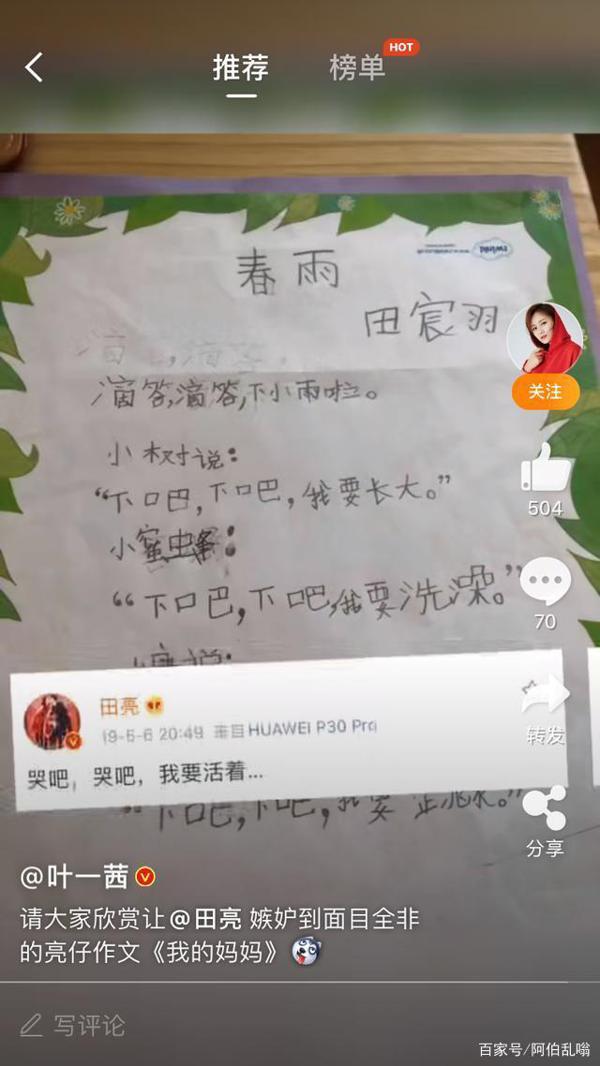 推荐
榜单
HOT
春雨
田宸羽
滴答,滴答,下小雨啦。
小树说:
“下吧,下吧,我要长大。”
小蜜
“下吧,下吧,我要洗澡。”
说:
田亮
19-5-6 20:49 来自HUAWEI P30 Pro
哭吧,哭吧,我要活着...
“下吧,下吧,我要
关注
504
70
转发
分享
@叶一茜
请大家欣赏让@田亮 嫉妒到面目全非
的亮仔作文《我的妈妈》
写评论
百家号/阿伯乱嗡